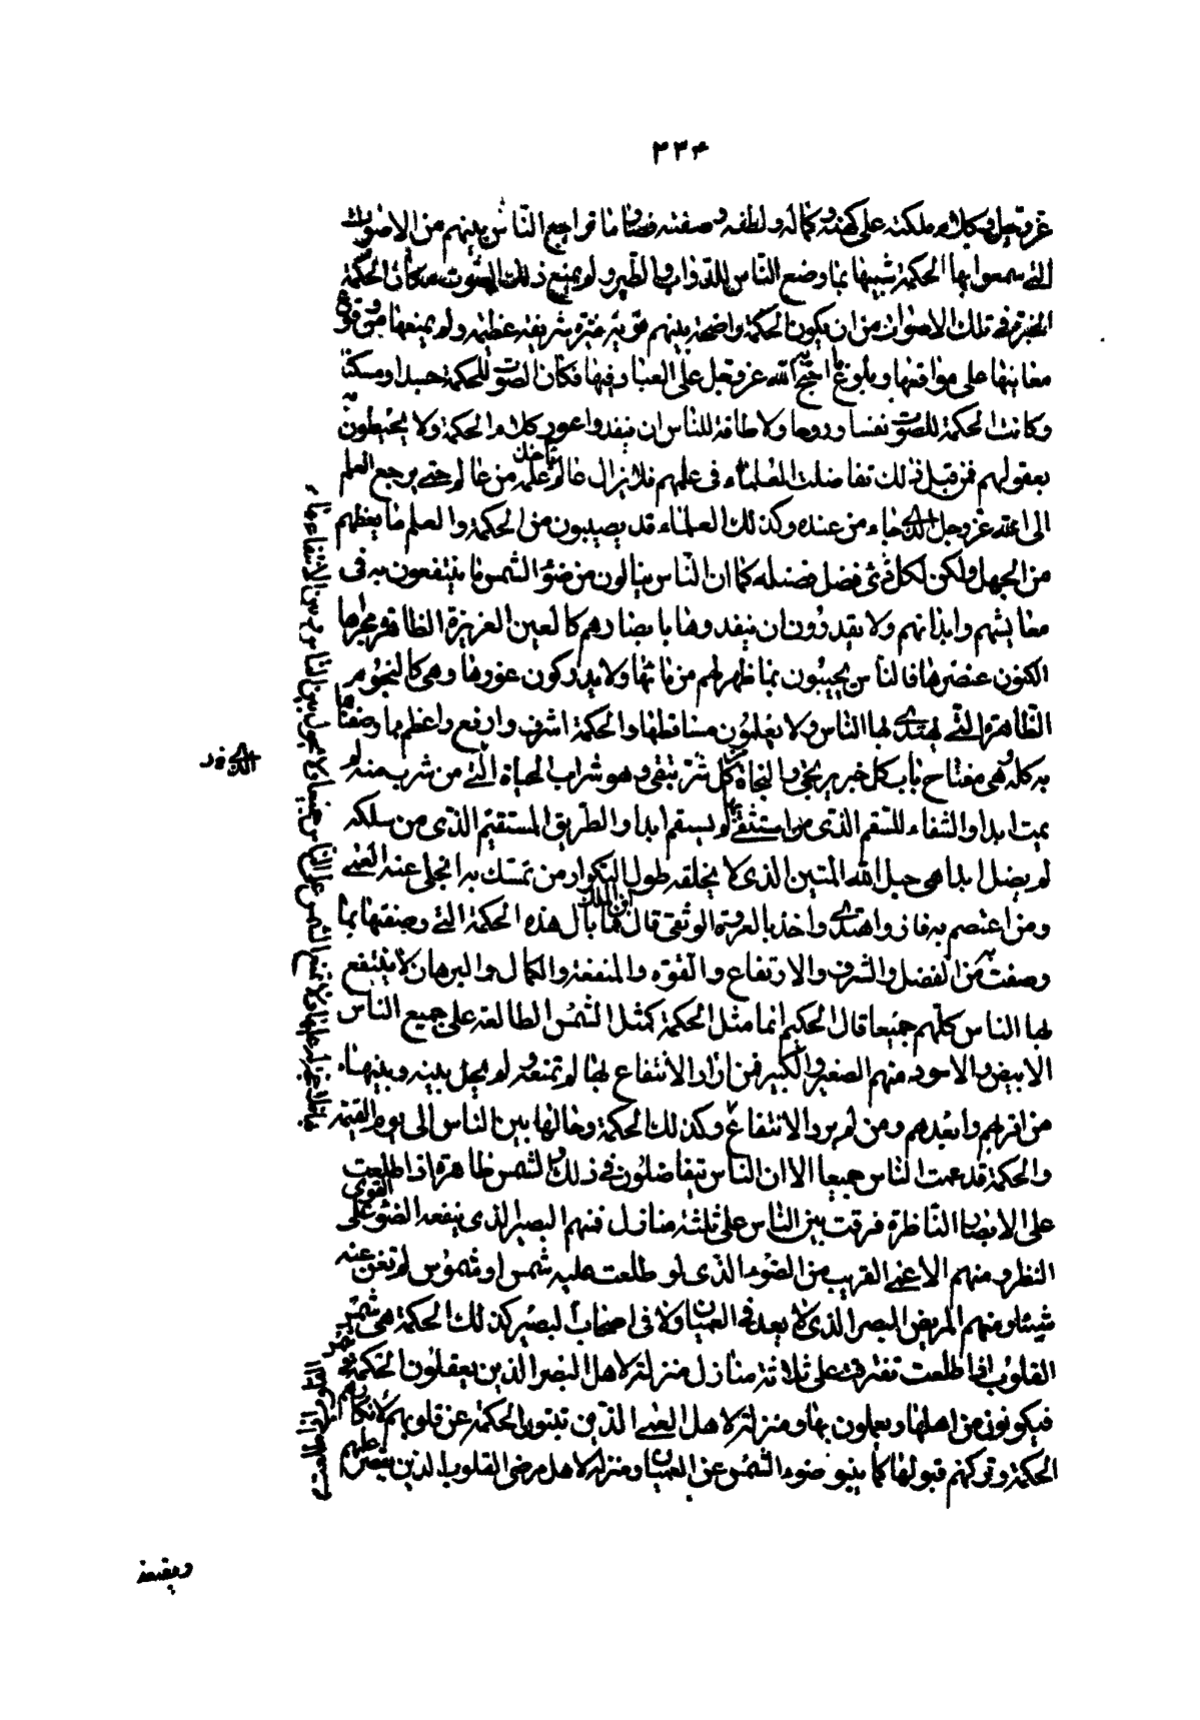 ٢٣٤
عز وجل وكلامه ملكته على كنهه وكماله ولطفه وصفته فصار ما تراجع الناس بينهم من الاصوات
التي سمعوا بها الحكمة شبيها بما وضع الناس للدواب والطير ولم يمنع ذلك الصوت مكان الحكمة
المخبرة في تلك الاصوات من ان يكون الحكمة واضحة بينهم قوية منيرة شريفة عظيمة ولم يمنعها من وقوع
معانيها على مواقعها وبلوغ ما احتج به الله عز وجل على العباد فيها فكان الصوت للحكمة جسدا ومسكنا
وكانت الحكمة للصوت نفسا وروحا ولا طاقة للناس ان ينفدوا غور كلام الحكمة ولا يحيطون به
بعقولهم فمن قبل ذلك تفاضلت العلماء في علمهم فلا يزال عالم ياخذ علمه من عالم حتى يرجع العلم
الى الله عز وجل الذي جاء من عنده وكذلك العلماء قد يصيبون من الحكمة والعلم ما يعظمهم
من الجهل ولكن لكل ذي فضل فضله كما ان الناس ينالون من ضوء الشمس ما ينتفعون به في
معايشهم وابدانهم ولا يقدرون ان ينفدوها بابصارهم كالعين الغزيرة الظاهر مجراها
المكنون عنصرها فالناس يجيبون بما ظهر لهم من مائها ولا يدركون غورها وهي كالنجوم
الظاهرة التي يهتدي بها الناس ولا يعلمون مساقطها والحكمة اشرف وارفع واعظم مما وصفناها
به كله هي مفتاح باب كل خير يرتجى والنجاة من كل شر يتقى وهو شراب الحياة التي من شرب منه لم
يمت ابدا والشفاء للسقم الذي من استشفى به لم يسقم ابدا والطريق المستقيم الذي من سلكه
لم يضل ابدا هي حبل الله المتين الذي لا يخلقه طول التكرار من تمسك به انجلى عنه العمى
ومن اعتصم به فاز واهتدى واخذ بالعروة الوثقى قال ابن الملك فما بال هذه الحكمة التي وصفتها بما
وصفت به من الفضل والشرف والارتفاع والقوة والمنفعة والكمال والبرهان لا ينتفع
بها الناس كلهم جميعا قال الحكيم انما مثل الحكمة كمثل الشمس الطالعة على جميع الناس
الابيض والاسود منهم الصغير والكبير فمن اراد الانتفاع بها لم تمنعه ولم يحل بينه وبينها
من اقربهم وابعدهم ومن لم يرد الانتفاع بها
وكذلك الحكمة وحالها بين الناس الى يوم القيمة
والحكمة قد عمت الناس جميعا الا ان الناس يتفاضلون في ذلك والشمس ظاهرة اذا طلعت
على الابصار الناظرة فرقت بين الناس على ثلثة منازل فمنهم البصير الذي ينفعه الضوء ويقوى على
النظر ومنهم الاعمى القريب من الضوء الذي لو طلعت عليه شمس او شموس لم تغن عنه
شيئا ومنهم المريض البصر الذي لا يعد في العميان ولا في اصحاب البصر كذلك الحكمة هي شمس
القلوب اذا طلعت تفرقت على ثلاثة منازل منزلة لاهل البصر الذين يعقلون الحكمة
فيكونون من اهلها ويعملون بها ومنزلة لاهل العمى الذين تنبو الحكمة عن قلوبهم لانكارهم
الحكمة وتركهم قبولها كما ينبو ضوء الشمس عن العميان ومنزلة لاهل مرضى القلوب الذين يقصر علمهم